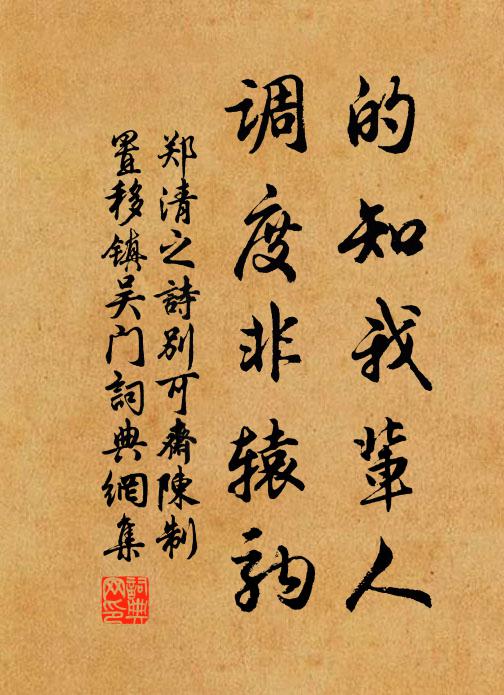 的知我輩人
调度非辕駒
郑清之詩别可齋陳制
置移镇吴门詞典網集
詞典网印